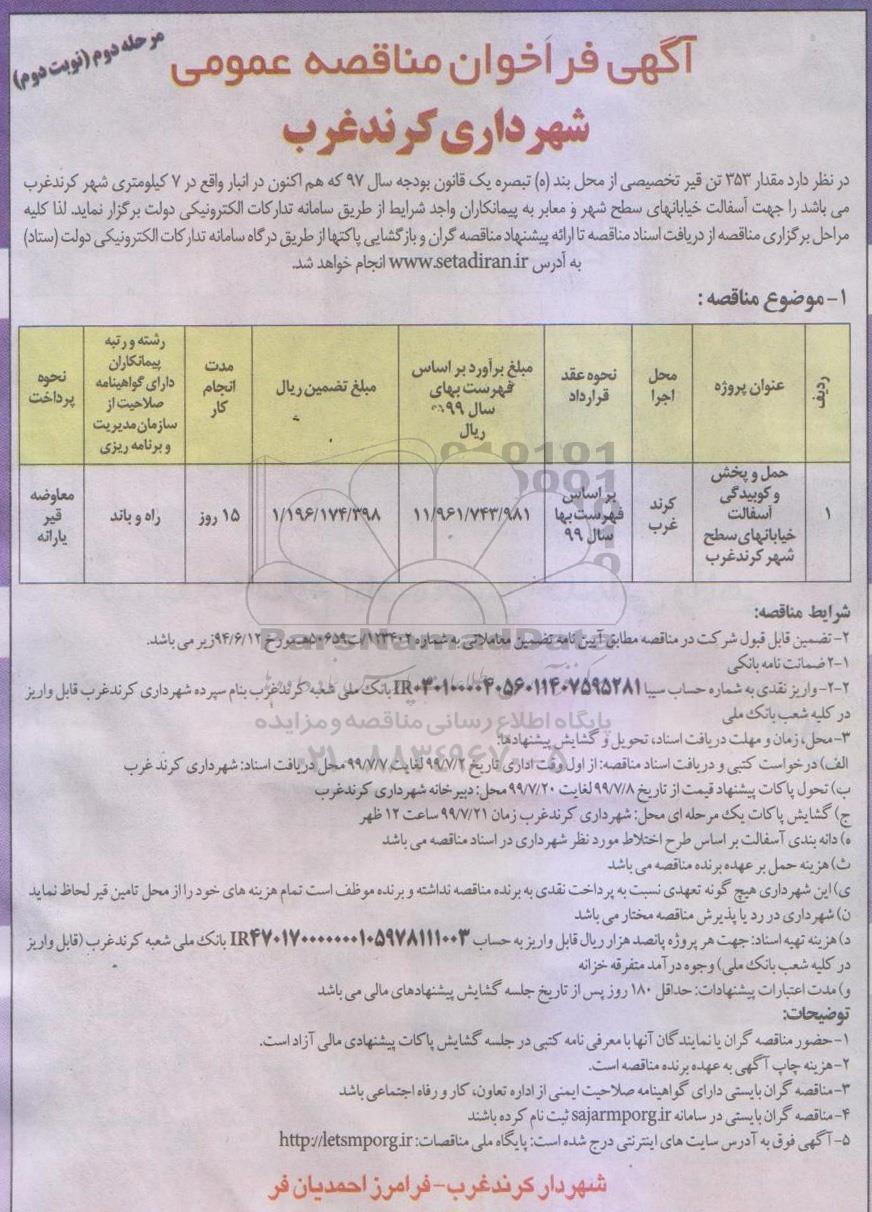 مرحله دوم (نوبت دوم)
آگهی فراخوان مناقصه عمومی
شهرداری کرندغرب
در نظر دارد مقدار ۳۵۳ تن قیر تخصیصی از محل بند (ه) تبصره یک قانون بودجه سال ۹۷ که هم اکنون در انبار واقع در ۷ کیلومتری شهر کرندغرب
می باشد را جهت آسفالت خیابانهای سطح شهر و معابر به پیمانکاران واجد شرایط از طریق سامانه تدارکات الکترونیکی دولت برگزار نماید. لذا کلیه
مراحل برگزاری مناقصه از دریافت اسناد مناقصه تا ارائه پیشنهاد مناقصه گران و بازگشایی پاکتها از طریق درگاه سامانه تدارکات الکترونیکی دولت (ستاد)
به آدرس www.setadiran.ir انجام خواهد شد.
۱- موضوع مناقصه :
ردیف
عنوان پروژه
محل
اجرا
نحوه عقد
قرارداد
مبلغ برآورد بر اساس
فهرست بهای
سال ۹۹
ریال
مبلغ تضمین ریال
مدت
انجام
کار
رشته و رتبه
پیمانکاران
دارای گواهینامه
صلاحیت از
سازمان مدیریت
و برنامه ریزی
نحوه
پرداخت
۱
حمل و پخش
و کوبیدگی
آسفالت
خیابانهای سطح
شهر کرندغرب
کرند
غرب
بر اساس
فهرست بها
سال ۹۹
۱۱/۹۶۱/۷۴۳/۹۸۱
۱/۱۹۶/۱۷۴/۳۹۸
۱۵ روز
راه و باند
معاوضه
قیر
یارانه
شرایط مناقصه:
۲- تضمین قابل قبول شرکت در مناقصه مطابق آیین نامه تضمین معاملاتی به شماره ۱۲۳۴۰۲/ت۵۰۶۵۹هـ مورخ ۹۴/۶/۱۲ زیر می باشد.
۲-۱ ضمانت نامه بانکی
۲-۲- واریز نقدی به شماره حساب سیبا IR۰۳۰۱۰۰۰۰۴۰۵۶۰۱۱۴۰۷۵۹۵۲۸۱ بانک ملی شعبه کرندغرب بنام سپرده شهرداری کرندغرب قابل واریز
در کلیه شعب بانک ملی
۳- محل، زمان و مهلت دریافت اسناد، تحویل و گشایش پیشنهادها:
الف) درخواست کتبی و دریافت اسناد مناقصه: از اول وقت اداری تاریخ ۹۹/۷/۲ لغایت ۹۹/۷/۷ محل دریافت اسناد: شهرداری کرند غرب
ب) تحول پاکات پیشنهاد قیمت از تاریخ ۹۹/۷/۸ لغایت ۹۹/۷/۲۰ محل: دبیرخانه شهرداری کرندغرب
ج) گشایش پاکات یک مرحله ای محل: شهرداری کرندغرب زمان ۹۹/۷/۲۱ ساعت ۱۲ ظهر
ه) دانه بندی آسفالت بر اساس طرح اختلاط مورد نظر شهرداری در اسناد مناقصه می باشد
ث) هزینه حمل بر عهده برنده مناقصه می باشد
ی) این شهرداری هیچ گونه تعهدی نسبت به پرداخت نقدی به برنده مناقصه نداشته و برنده موظف است تمام هزینه های خود را از محل تامین قیر لحاظ نماید
ن) شهرداری در رد یا پذیرش مناقصه مختار می باشد
د) هزینه تهیه اسناد: جهت هر پروژه پانصد هزار ریال قابل واریز به حساب IR۴۷۰۱۷۰۰۰۰۰۰۰۱۰۵۹۷۸۱۱۱۰۰۳ بانک ملی شعبه کرندغرب (قابل واریز
در کلیه شعب بانک ملی) وجوه درآمد متفرقه خزانه
و) مدت اعتبارات پیشنهادات: حداقل ۱۸۰ روز پس از تاریخ جلسه گشایش پیشنهادهای مالی می باشد
توضیحات:
۱- حضور مناقصه گران یا نمایندگان آنها با معرفی نامه کتبی در جلسه گشایش پاکات پیشنهادی مالی آزاد است.
۲- هزینه چاپ آگهی به عهده برنده مناقصه است.
۳- مناقصه گران بایستی دارای گواهینامه صلاحیت ایمنی از اداره تعاون، کار و رفاه اجتماعی باشد
۴- مناقصه گران بایستی در سامانه sajarmporg.ir ثبت نام کرده باشند
۵- آگهی فوق به آدرس سایت های اینترنتی درج شده است: پایگاه ملی مناقصات: http://letsmporg.ir
شهردار کرندغرب - فرامرز احمدیان فر
ParsNamadData
پایگاه اطلاع رسانی مناقصه و مزایده
۰۲۱-۸۸۳۴۹۶۷۰-۵